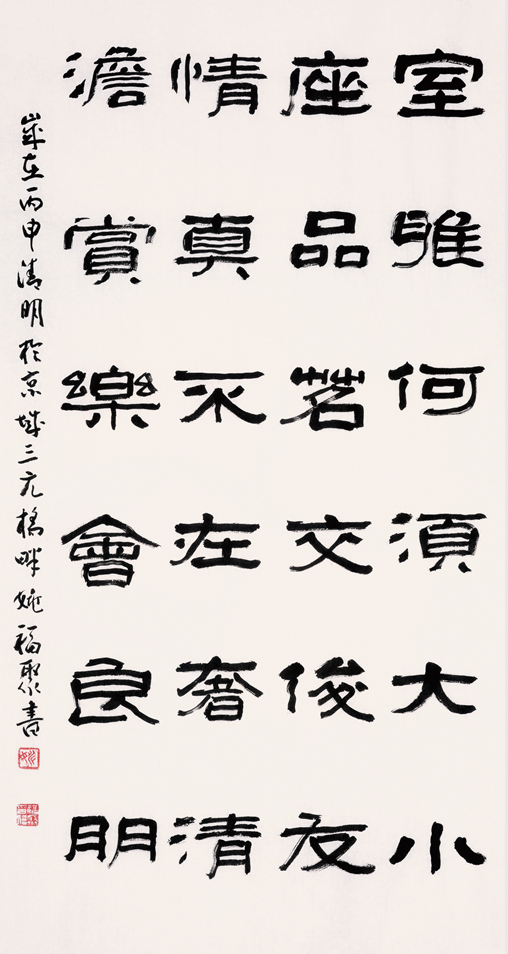 室雅何須大小
座品茗交俊友
情真不在奢清
澹賞樂會良朋
歲在丙申清明於京城三元橋畔姚福聚書